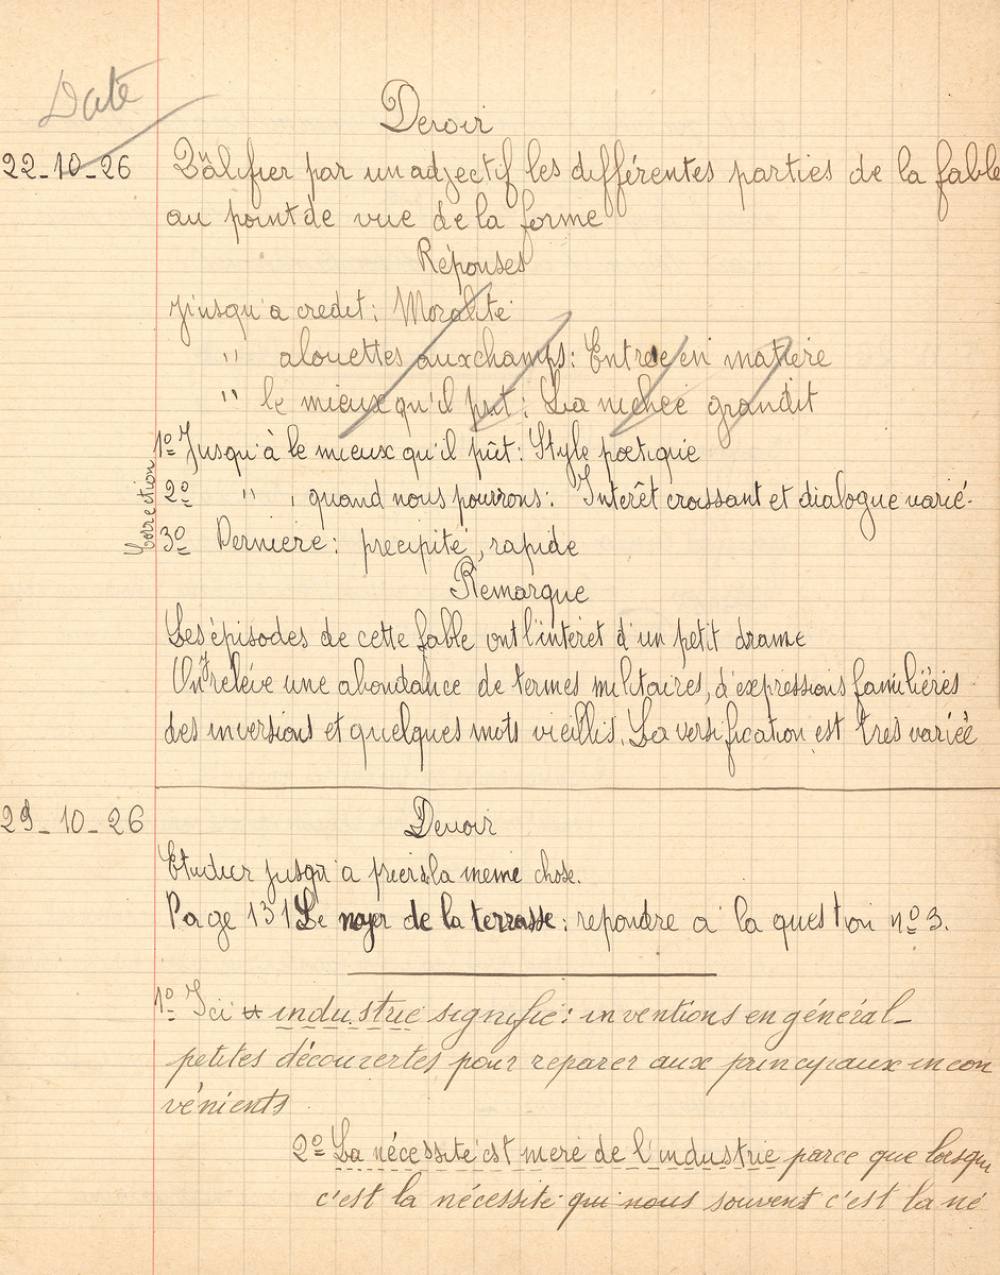 Date
Devoir
22-10-26 Qualifier par un adjectif les différentes parties de la fable
au point de vue de la forme
Réponses
Jusqu'a credit: Moralité
" alouettes aux champs: Entrée en matière
" le mieux qu'il put: La nichée grandit
1º Jusqu'à le mieux qu'il pût: Style poetique
Correction
2º " , quand nous pourrons: Interêt croissant et dialogue varié.
3º Derniere: precipité, rapide
Remarque
Les épisodes de cette fable ont l'interet d'un petit drame
On y relève une abondance de termes militaires, d'expressions familières
des inversions et quelques mots vieillis. La versification est très variée
29-10-26 Devoir
Etudier jusqu'a la meme chose.
Page 131 Le noyer de la terrasse: repondre a la question nº 3.
1º Ici industrie signifie: inventions en général_
petites découvertes pour reparer aux principaux incon
vénients
2º La nécessité est mere de l'industrie parce que lorsqu
c'est la nécessité qui nous souvent c'est la né